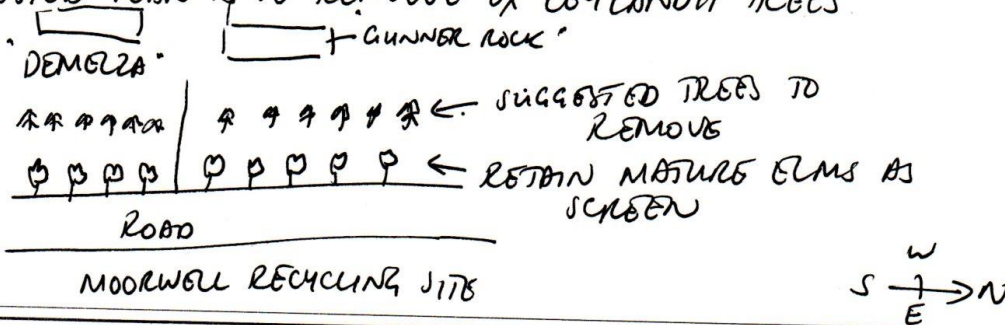 TREES
"DEMELZA"
"GUNNER ROCK"
SUGGESTED TREES TO
REMOVE
RETAIN MATURE ELMS AS
SCREEN
ROAD
MOORWELL RECYCLING SITE
W
S N
E